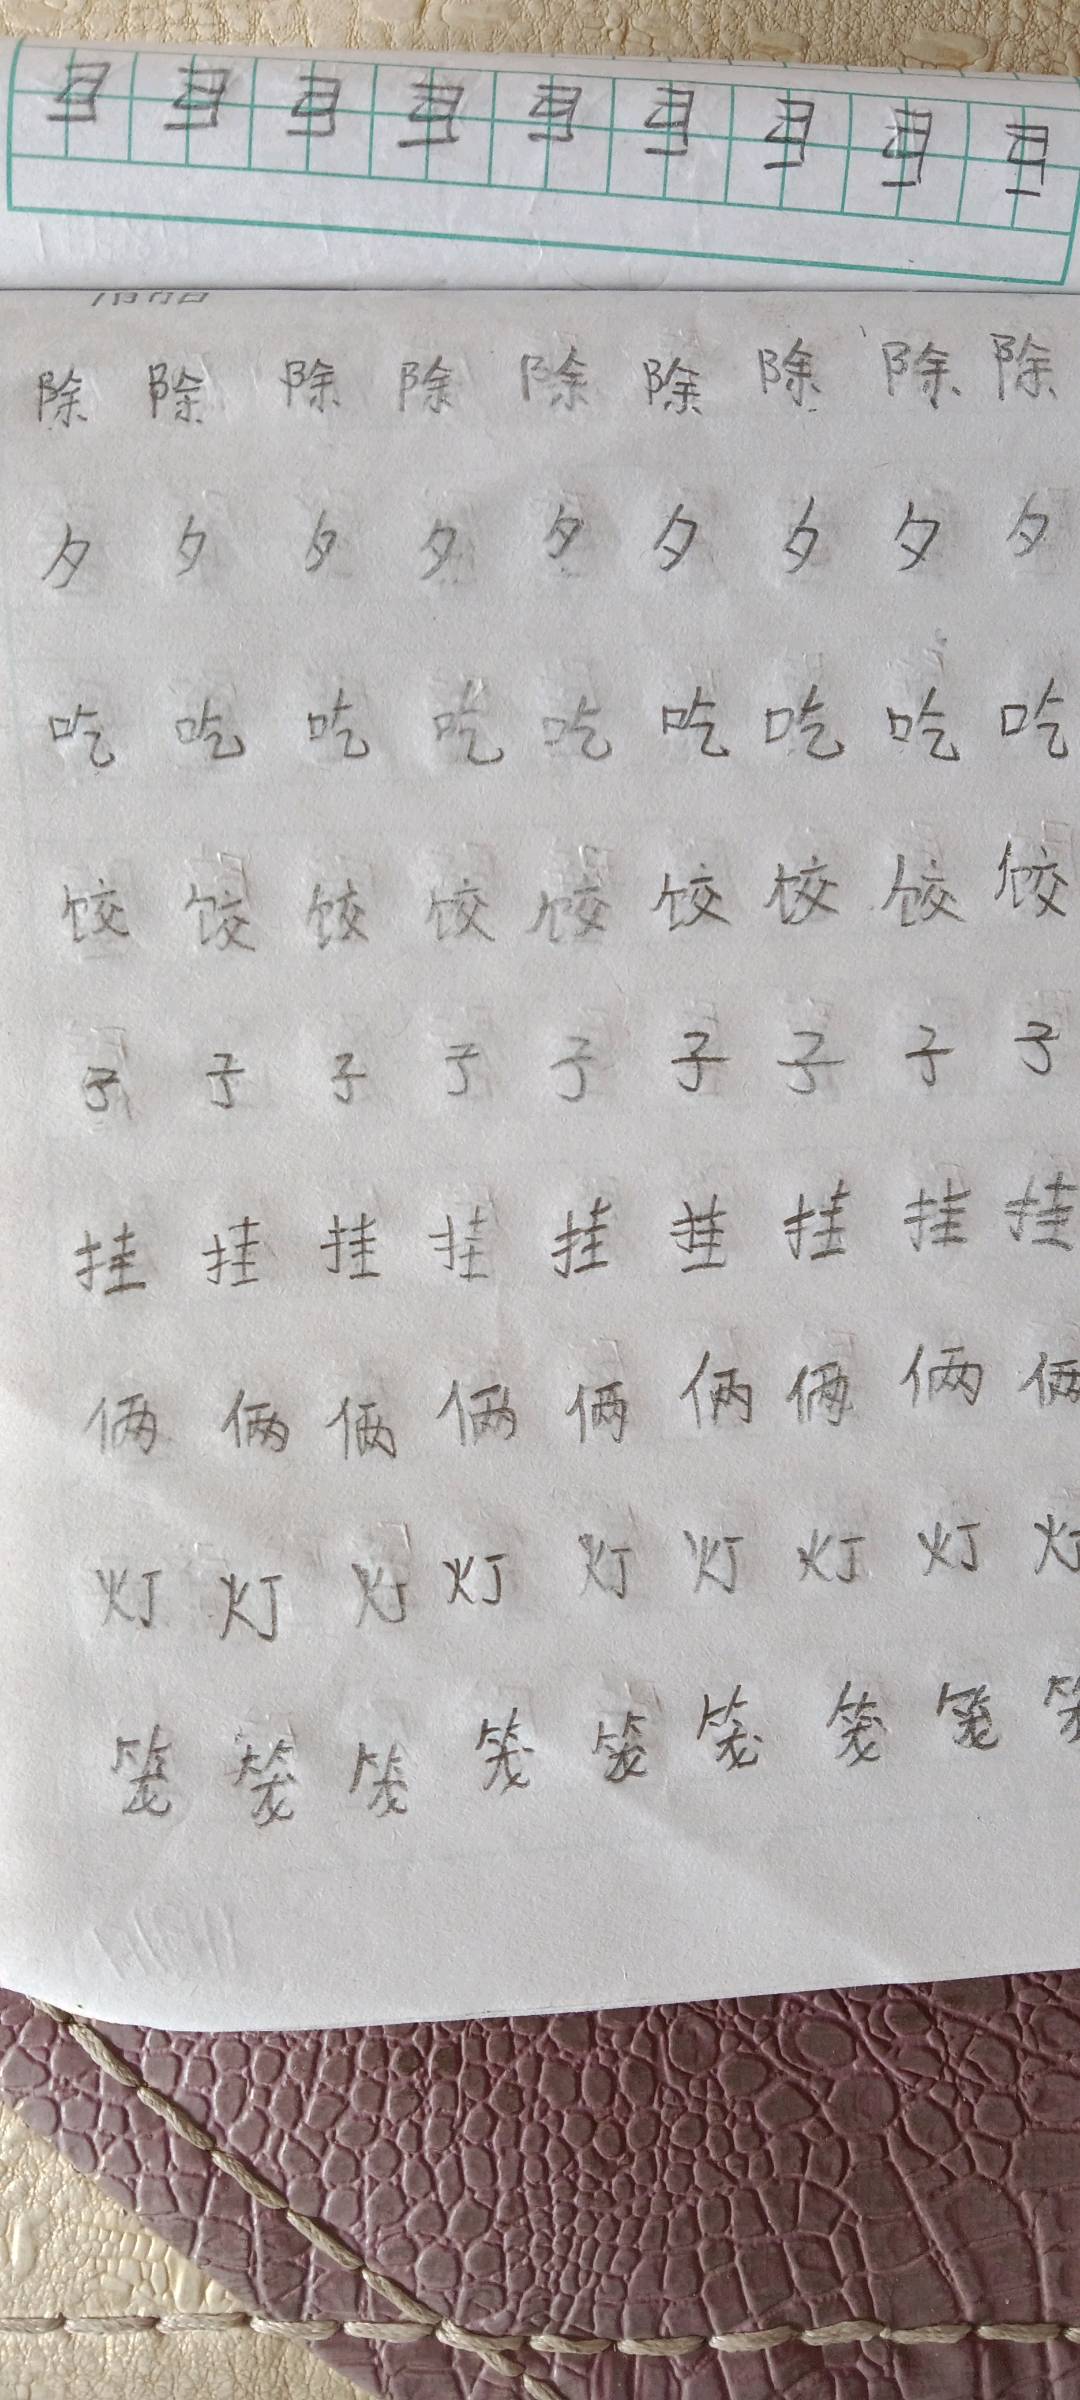 除 除 除 除 除 除 除 除 除
夕 夕 夕 夕 夕 夕 夕 夕 夕
吃 吃 吃 吃 吃 吃 吃 吃 吃
饺 饺 饺 饺 饺 饺 饺 饺 饺
子 子 子 子 子 子 子 子 子
挂 挂 挂 挂 挂 挂 挂 挂 挂
俩 俩 俩 俩 俩 俩 俩 俩 俩
灯 灯 灯 灯 灯 灯 灯 灯 灯
笼 笼 笼 笼 笼 笼 笼 笼